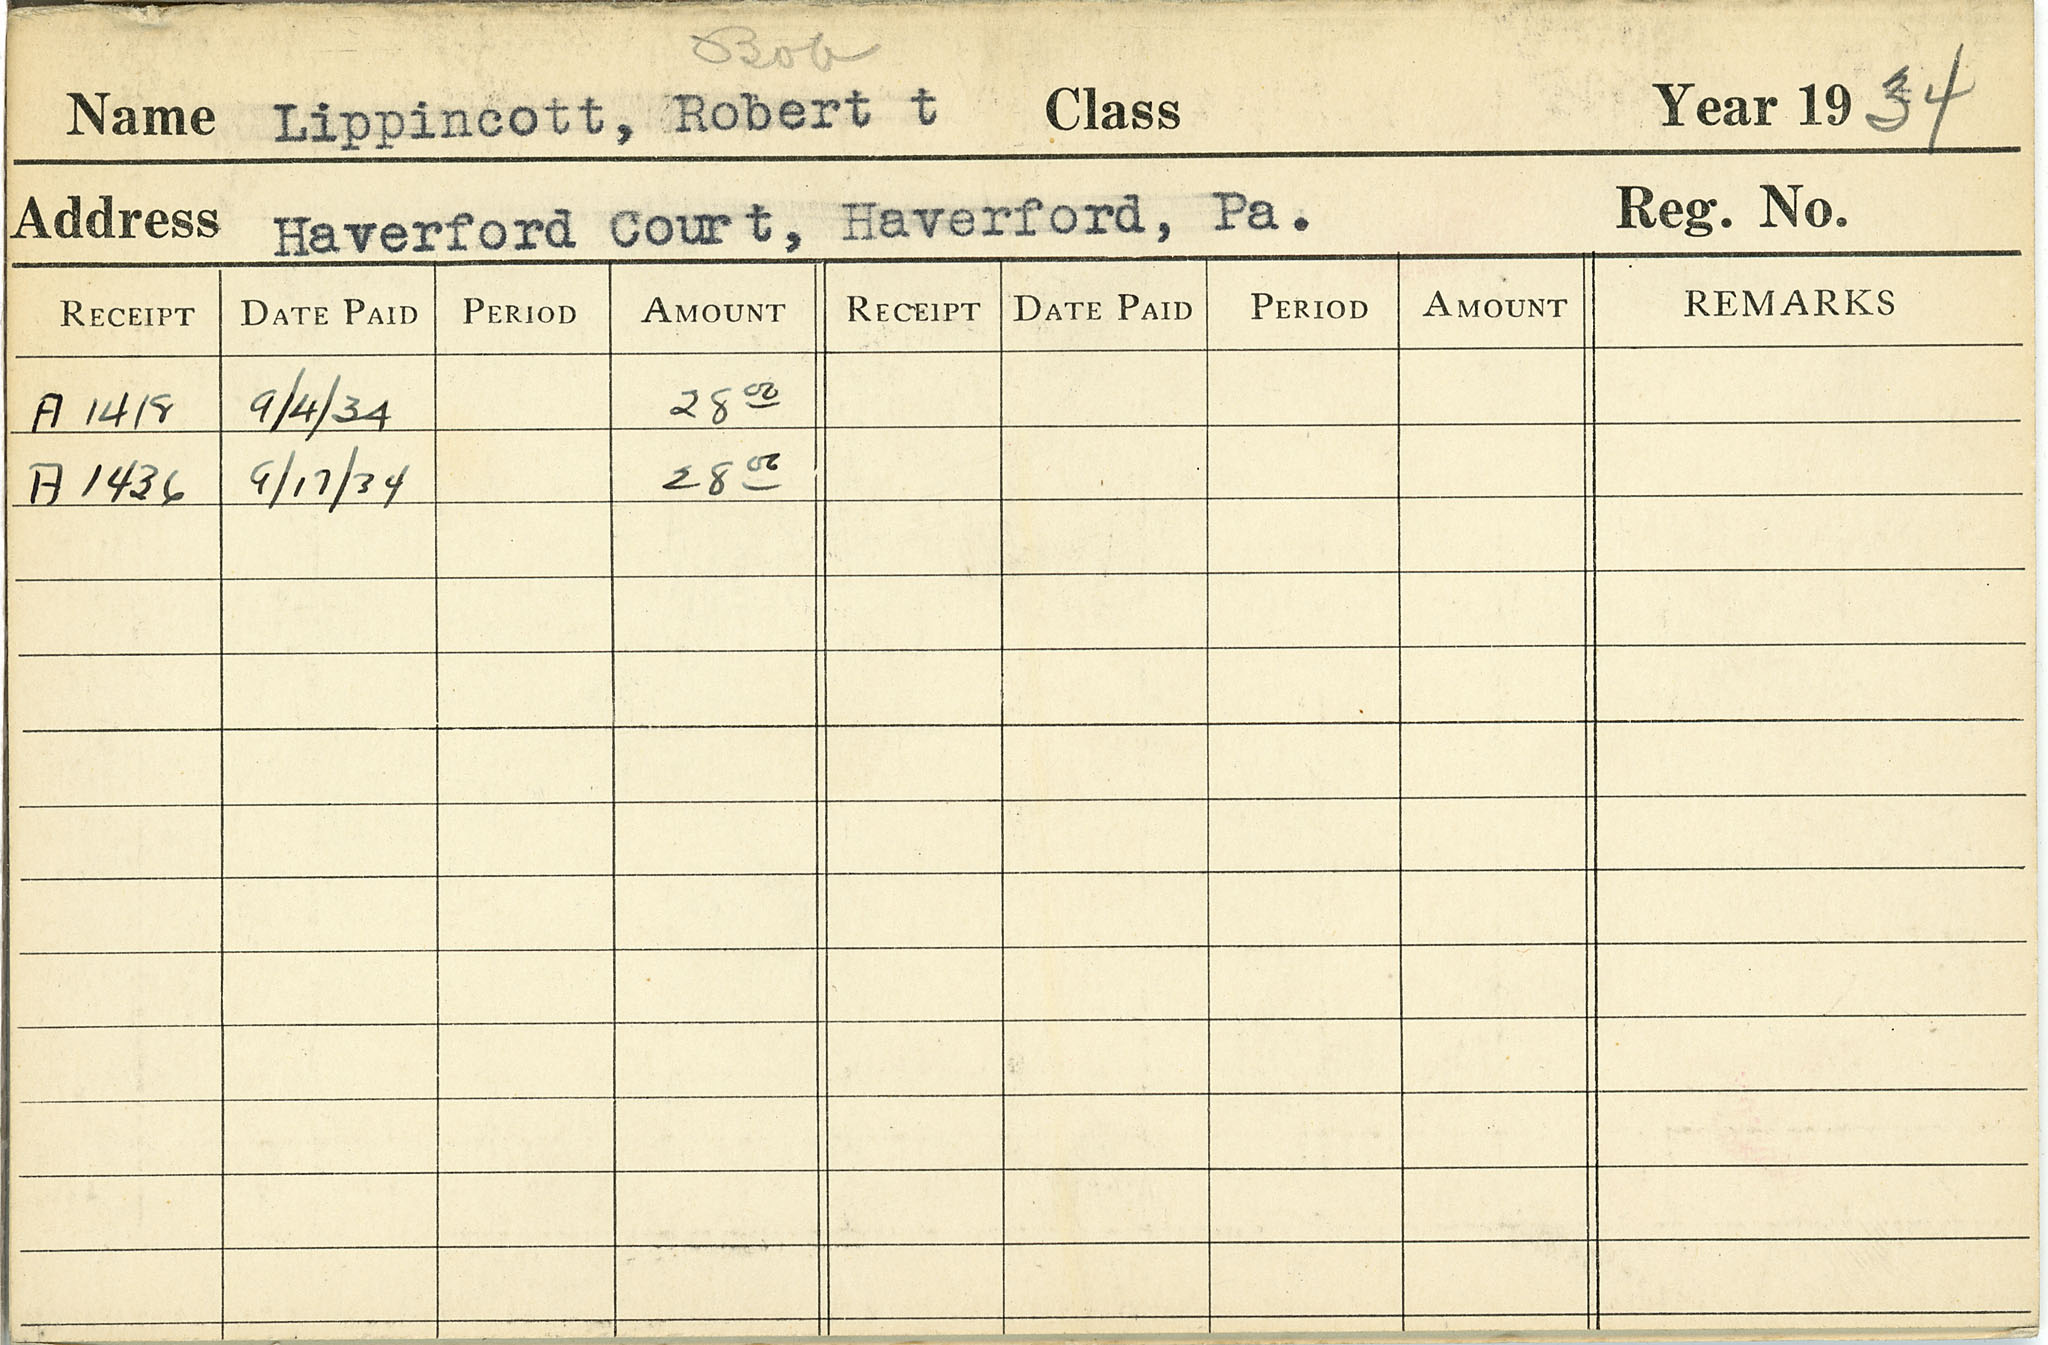 Bob
Name Lippincott, Robert t Class Year 19 34
Address Haverford Court, Haverford, Pa. Reg. No.
RECEIPT DATE PAID PERIOD AMOUNT RECEIPT DATE PAID PERIOD AMOUNT REMARKS
A 1418 9/4/34 28 00
A 1436 9/17/34 28 00